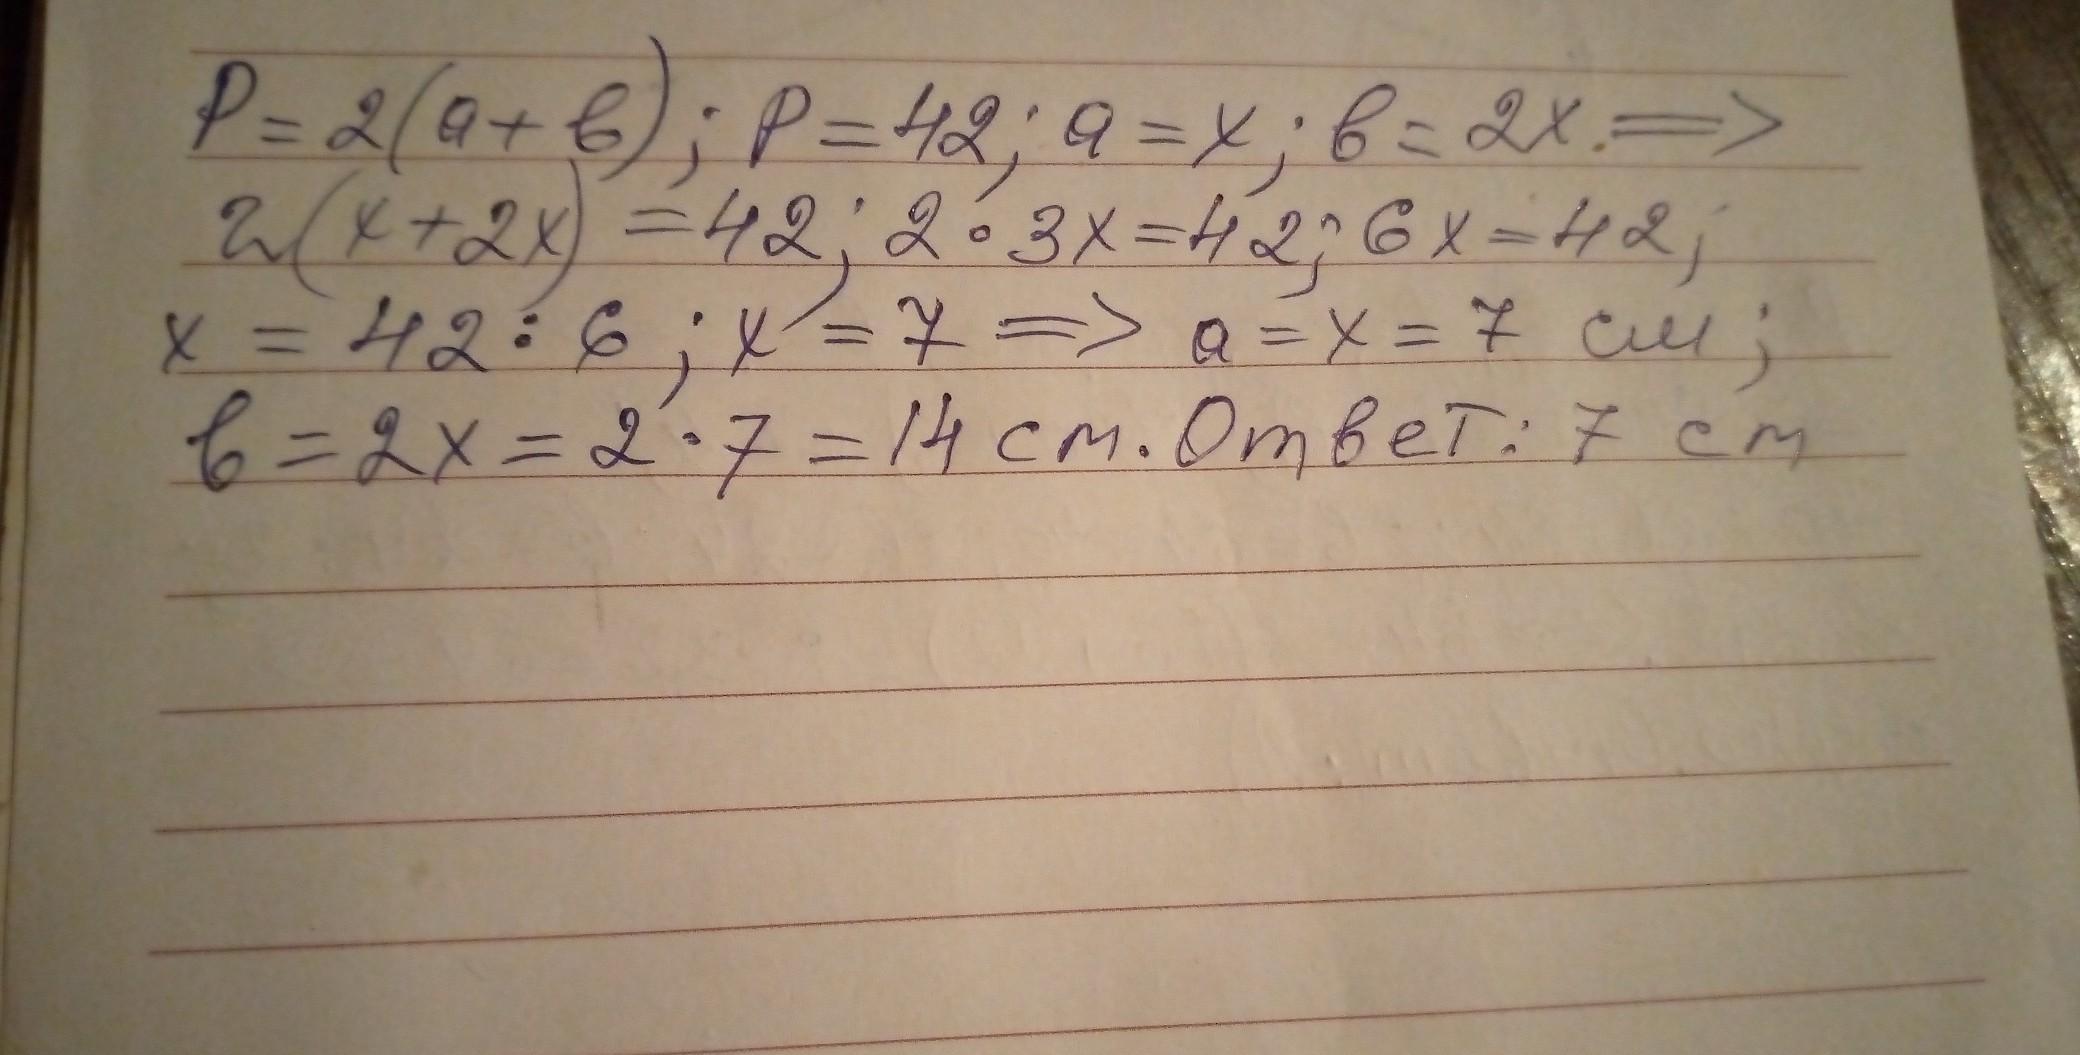 P=2(a+в); P=42; a=x; в=2x.=>
2(x+2x)=42; 2•3x=42; 6x=42;
x=42:6; x=7 => a=x=7 см;
в=2x=2·7=14 см. Ответ: 7 см